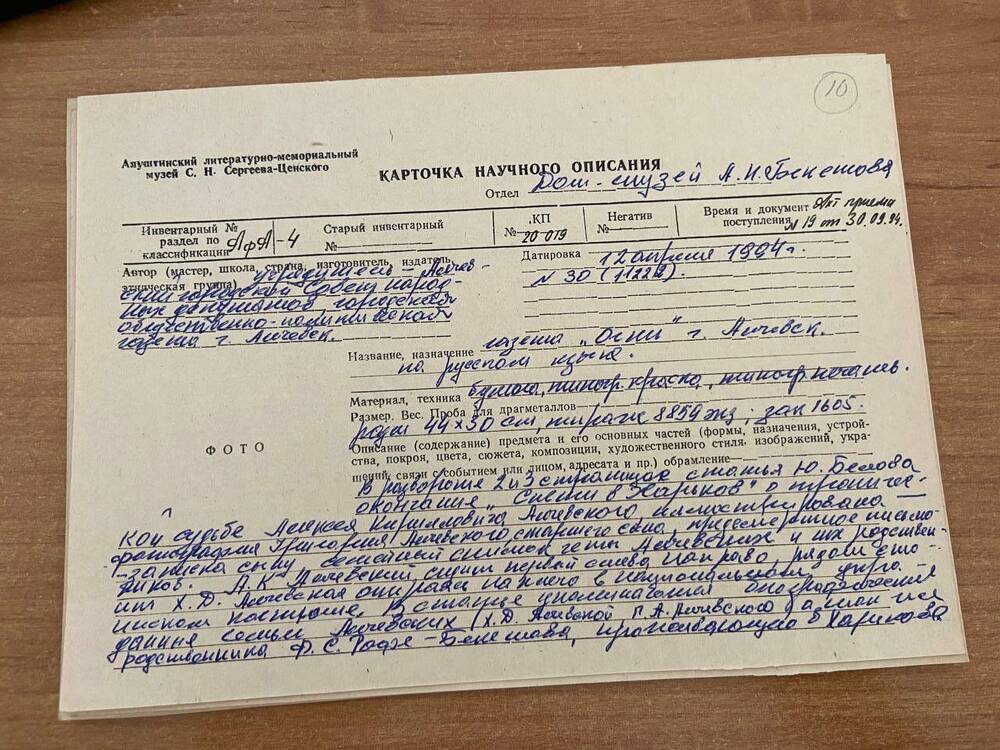 10
Алуштинский литературно-мемориальный
музей С. Н. Сергеева-Ценского
КАРТОЧКА НАУЧНОГО ОПИСАНИЯ
Отдел Дом-музей А.Н. Бекетова
Инвентарный №
раздел по
классификации АфА-4
Старый инвентарный
№
КП
№ 20 019
Негатив
№
Время и документ Акт приема
поступления № 19 от 30.09.94.
Автор (мастер, школа, страна, изготовитель, издатель,
этническая группа) учредитель – Алчев-
ский городской Совет народ-
ных депутатов городская
общественно-политическая
газета г. Алчевск.
Датировка 12 апреля 1994 г.
N 30 (11229)
Название, назначение газета „Огни" г. Алчевск.
на русском языке.
Материал, техника бумага, типогр. краска, типогр. печать.
Размер. Вес. Проба для драгметаллов
разм 44×30 см, тираж 8854 экз; зак 1605.
ФОТО
Описание (содержание) предмета и его основных частей (формы, назначения, устрой-
ства, покроя, цвета, сюжета, композиции, художественного стиля, изображений, укра-
шений, связи с событием или лицом, адресата и пр.) обрамление
В развороте 2 и 3 страницах статья Ю. Белова
окончание „Спеши в Харьков" о трагичес-
кой судьбе Алексея Кирилловича Алчевского иллюстрирована –
фотография Григория Алчевского, старшего сына, предсмертное письмо-
-записка сыну, семейный снимок четы Алчевских и их родствен-
ников. А.К. Алчевский, сидит первый слева направо, рядом сто-
ит Х.Д. Алчевская опираясь на него в национальном укра-
инском костюме. В статье упоминания
дания семьи Алчевских (Х.Д. Алчевской, Г.А. Алчевского) а так же
родственника Ф.С. Рофе-Бекетова, проживающего в Харькове